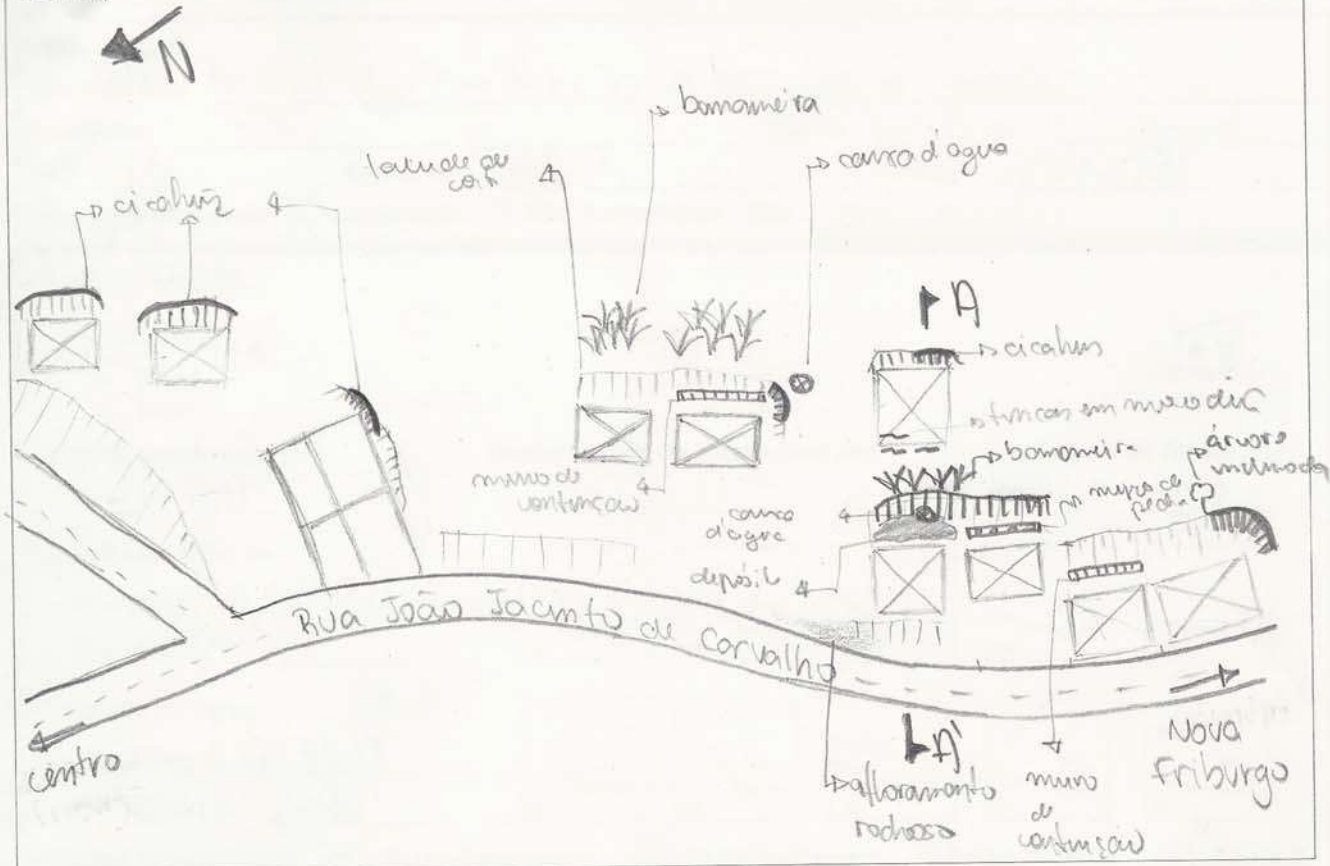 N
bananeira
talude de
corte
caixa d'água
cicatriz
A
cicatriz
trincas em moradia
bananeira
árvore
inclinada
muro de
pedra
muro de
contenção
caixa
d'água
depósito
Rua João Jacinto de Carvalho
centro
A'
afloramento
rochoso
muro
de
contenção
Nova
Friburgo